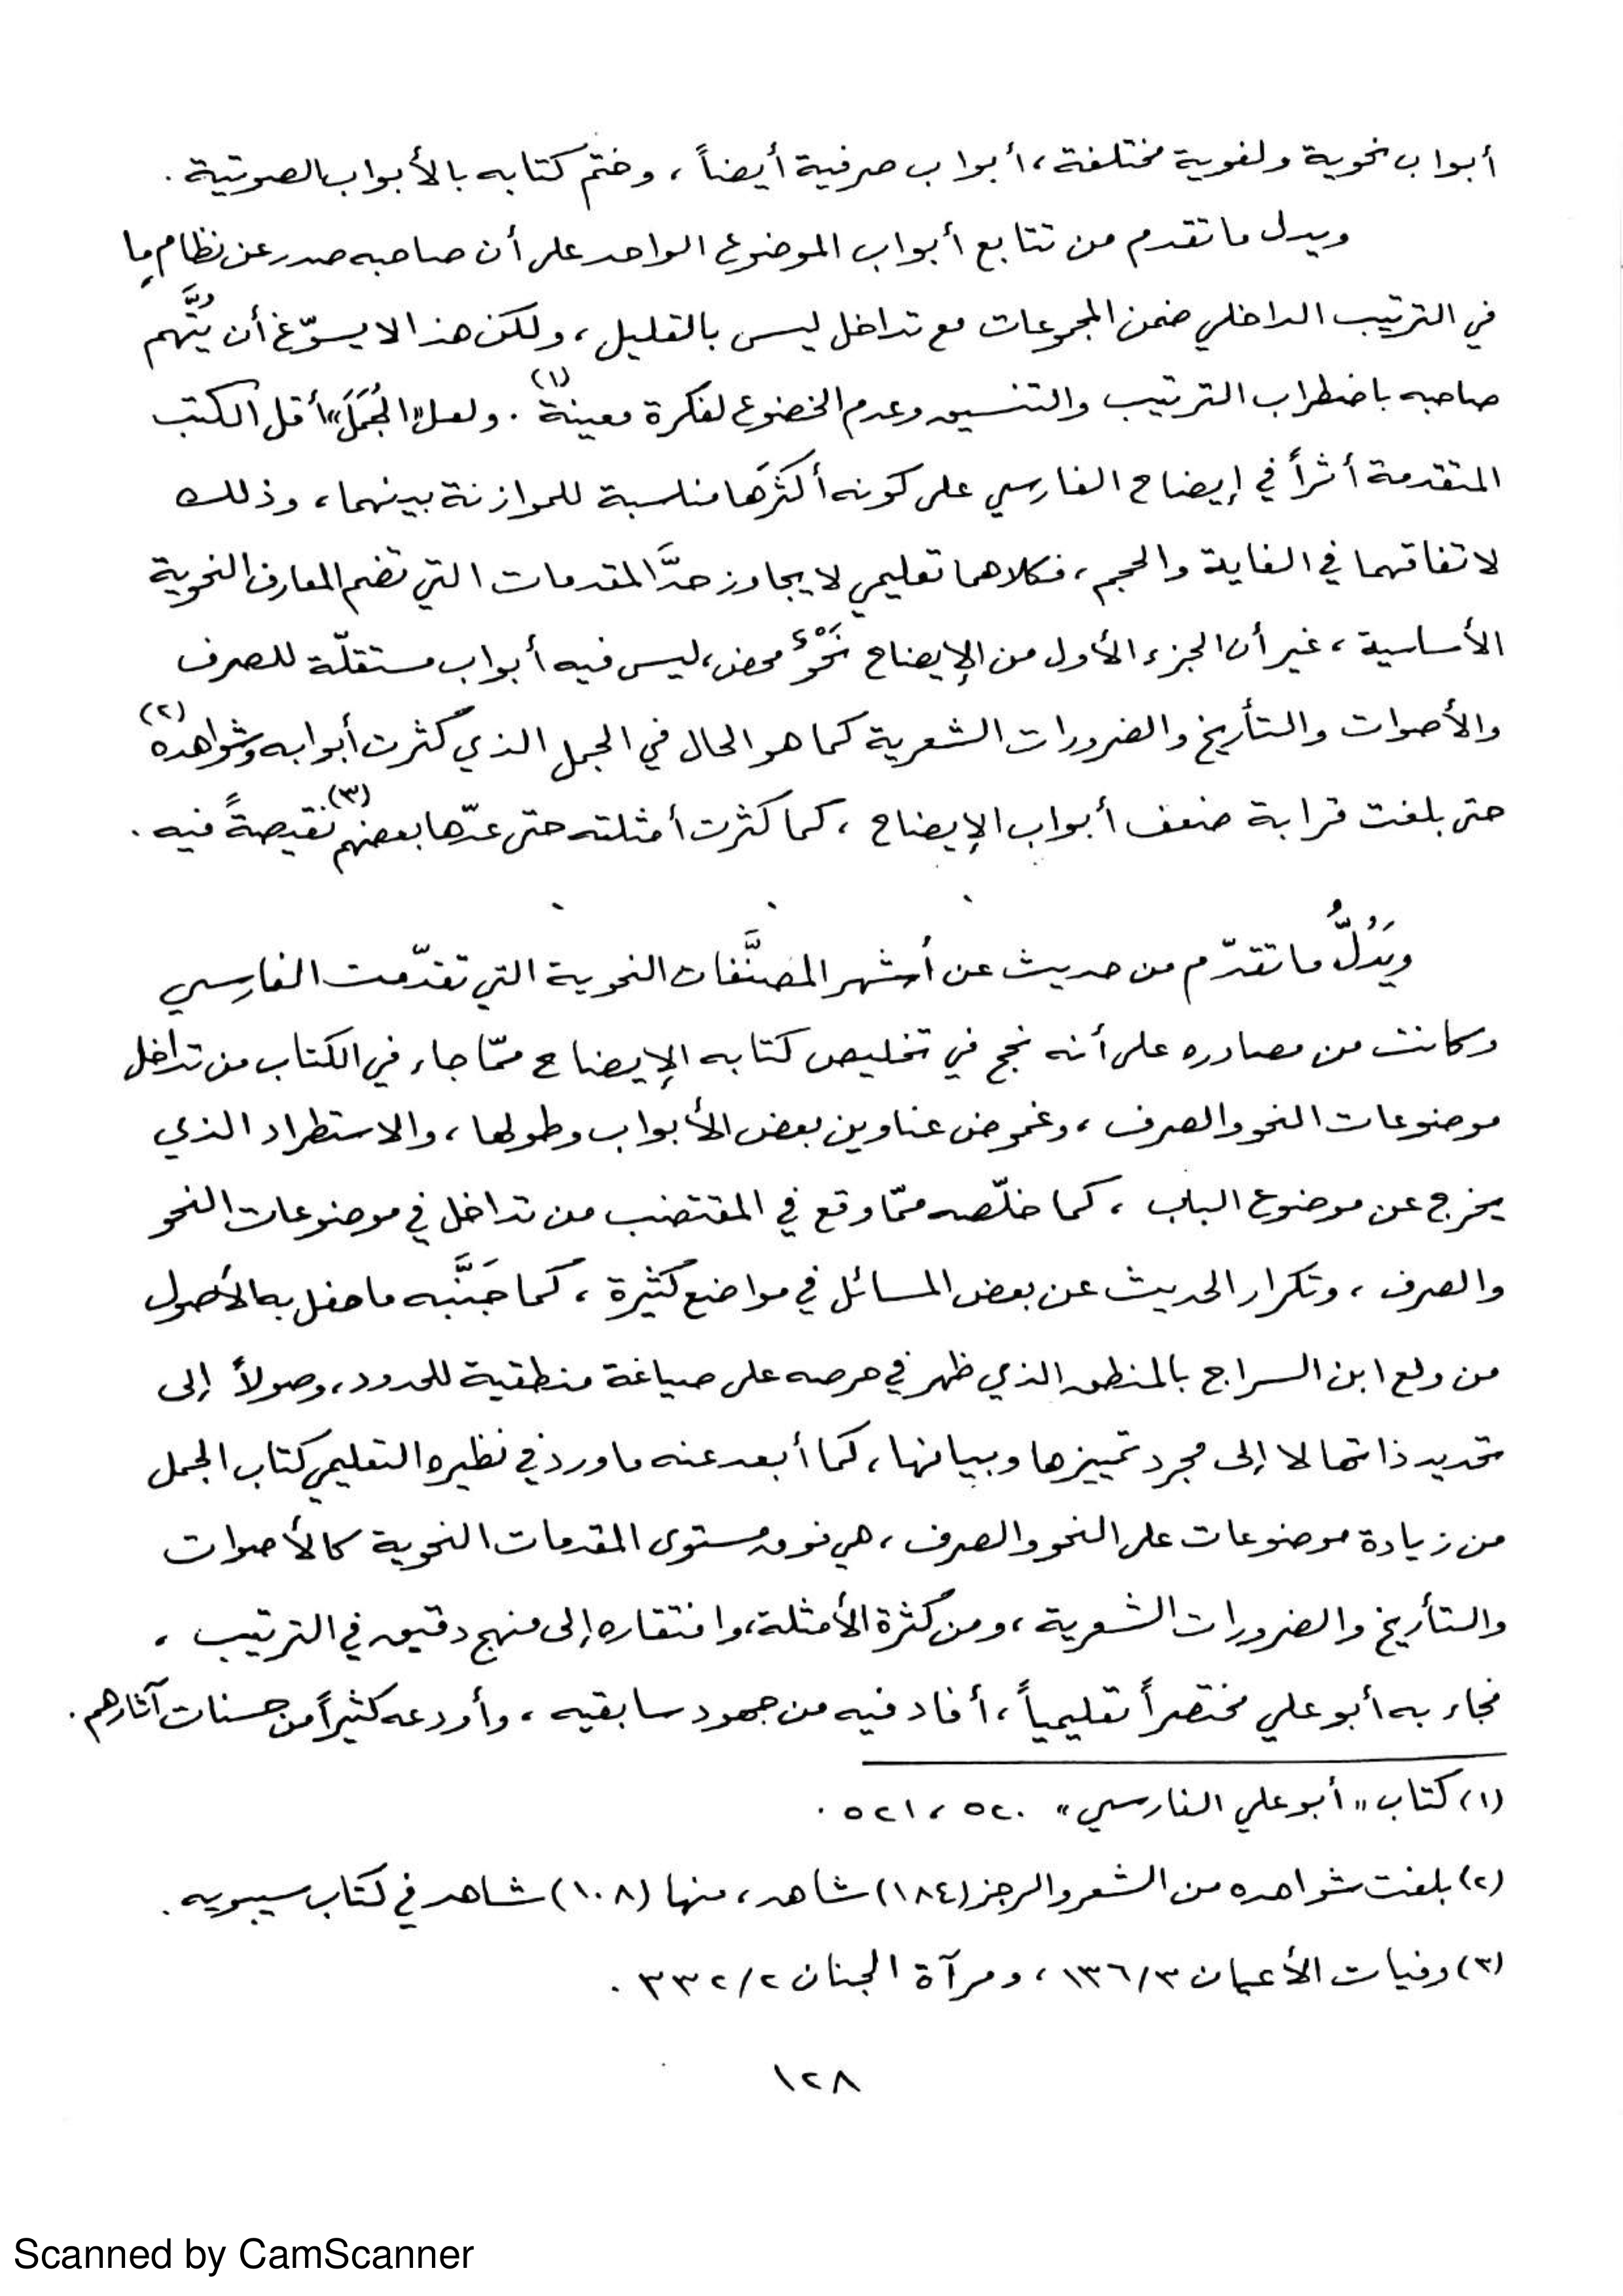 أبواب نحوية ولغوية مختلفة، أبواب صرفية أيضاً، وختم كتابه بالأبواب الصوتية .
ويدل ما تقدم من تتابع أبواب الموضوع الواحد على أن صاحبه صدر عن نظام ما
في الترتيب الداخلي ضمن المجموعات مع تداخل ليس بالقليل، ولكن هذا لا يسوّغ أن يُتَّهم
صاحبه باضطراب الترتيب والتنسيق وعدم الخضوع لفكرة معينة(١) . ولعل «الجُمَلَ» أقل الكتب
المتقدمة أثراً في إيضاح الفارسي على كونه أكثرَها مناسبة للموازنة بينهما، وذلك
لاتفاقهما في الغاية والحجم، فكلاهما تعليمي لا يجاوز حدَّ المقدمات التي تضم المعارف النحوية
الأساسية، غير أن الجزء الأول من الإيضاح نَحْوٌ محض، ليس فيه أبواب مستقلّة للصرف
والأصوات والتأريخ والضرورات الشعرية كما هو الحال في الجمل الذي كثرت أبوابه وشواهده(٢)
حتى بلغت قرابة ضعف أبواب الإيضاح، كما كثرت أمثلته حتى عدّها بعضهم(٣) نقيصةً فيه .
ويَدُلُّ ما تقدّم من حديث عن أشهر المصنَّفات النحوية التي تقدّمت الفارسي
وكانت من مصادره على أنه نجح في تخليص كتابه الإيضاح ممّا جاء في الكتاب من تداخل
موضوعات النحو والصرف، وغموض عناوين بعض الأبواب وطولها، والاستطراد الذي
يخرج عن موضوع الباب، كما خلّصه ممّا وقع في المقتضب من تداخل في موضوعات النحو
والصرف، وتكرار الحديث عن بعض المسائل في مواضع كثيرة، كما جَنَّبه ما حفل به الأصول
من ولع ابن السراج بالمنطق الذي ظهر في حرصه على صياغة منطقية للحدود، وصولاً إلى
تحديد ذاتها لا إلى مجرد تمييزها وبيانها، كما أبعد عنه ما ورد في نظيره التعليمي كتاب الجمل
من زيادة موضوعات على النحو والصرف، هي فوق مستوى المقدمات النحوية كالأصوات
والتأريخ والضرورات الشعرية، ومن كثرة الأمثلة، وافتقاره إلى منهج دقيق في الترتيب،
فجاء به أبو علي مختصراً تعليمياً، أفاد فيه من جهود سابقيه، وأودعه كثيراً من حسنات آثارهم .
(١) كتاب «أبو علي الفارسي» ٥٢٠، ٥٢١ .
(٢) بلغت شواهده من الشعر والرجز (١٨٤) شاهد، منها (١٠٨) شاهد في كتاب سيبويه .
(٣) وفيات الأعيان ١٣٦/٣، ومرآة الجنان ٣٣٢/٢ .
١٢٨
Scanned by CamScanner